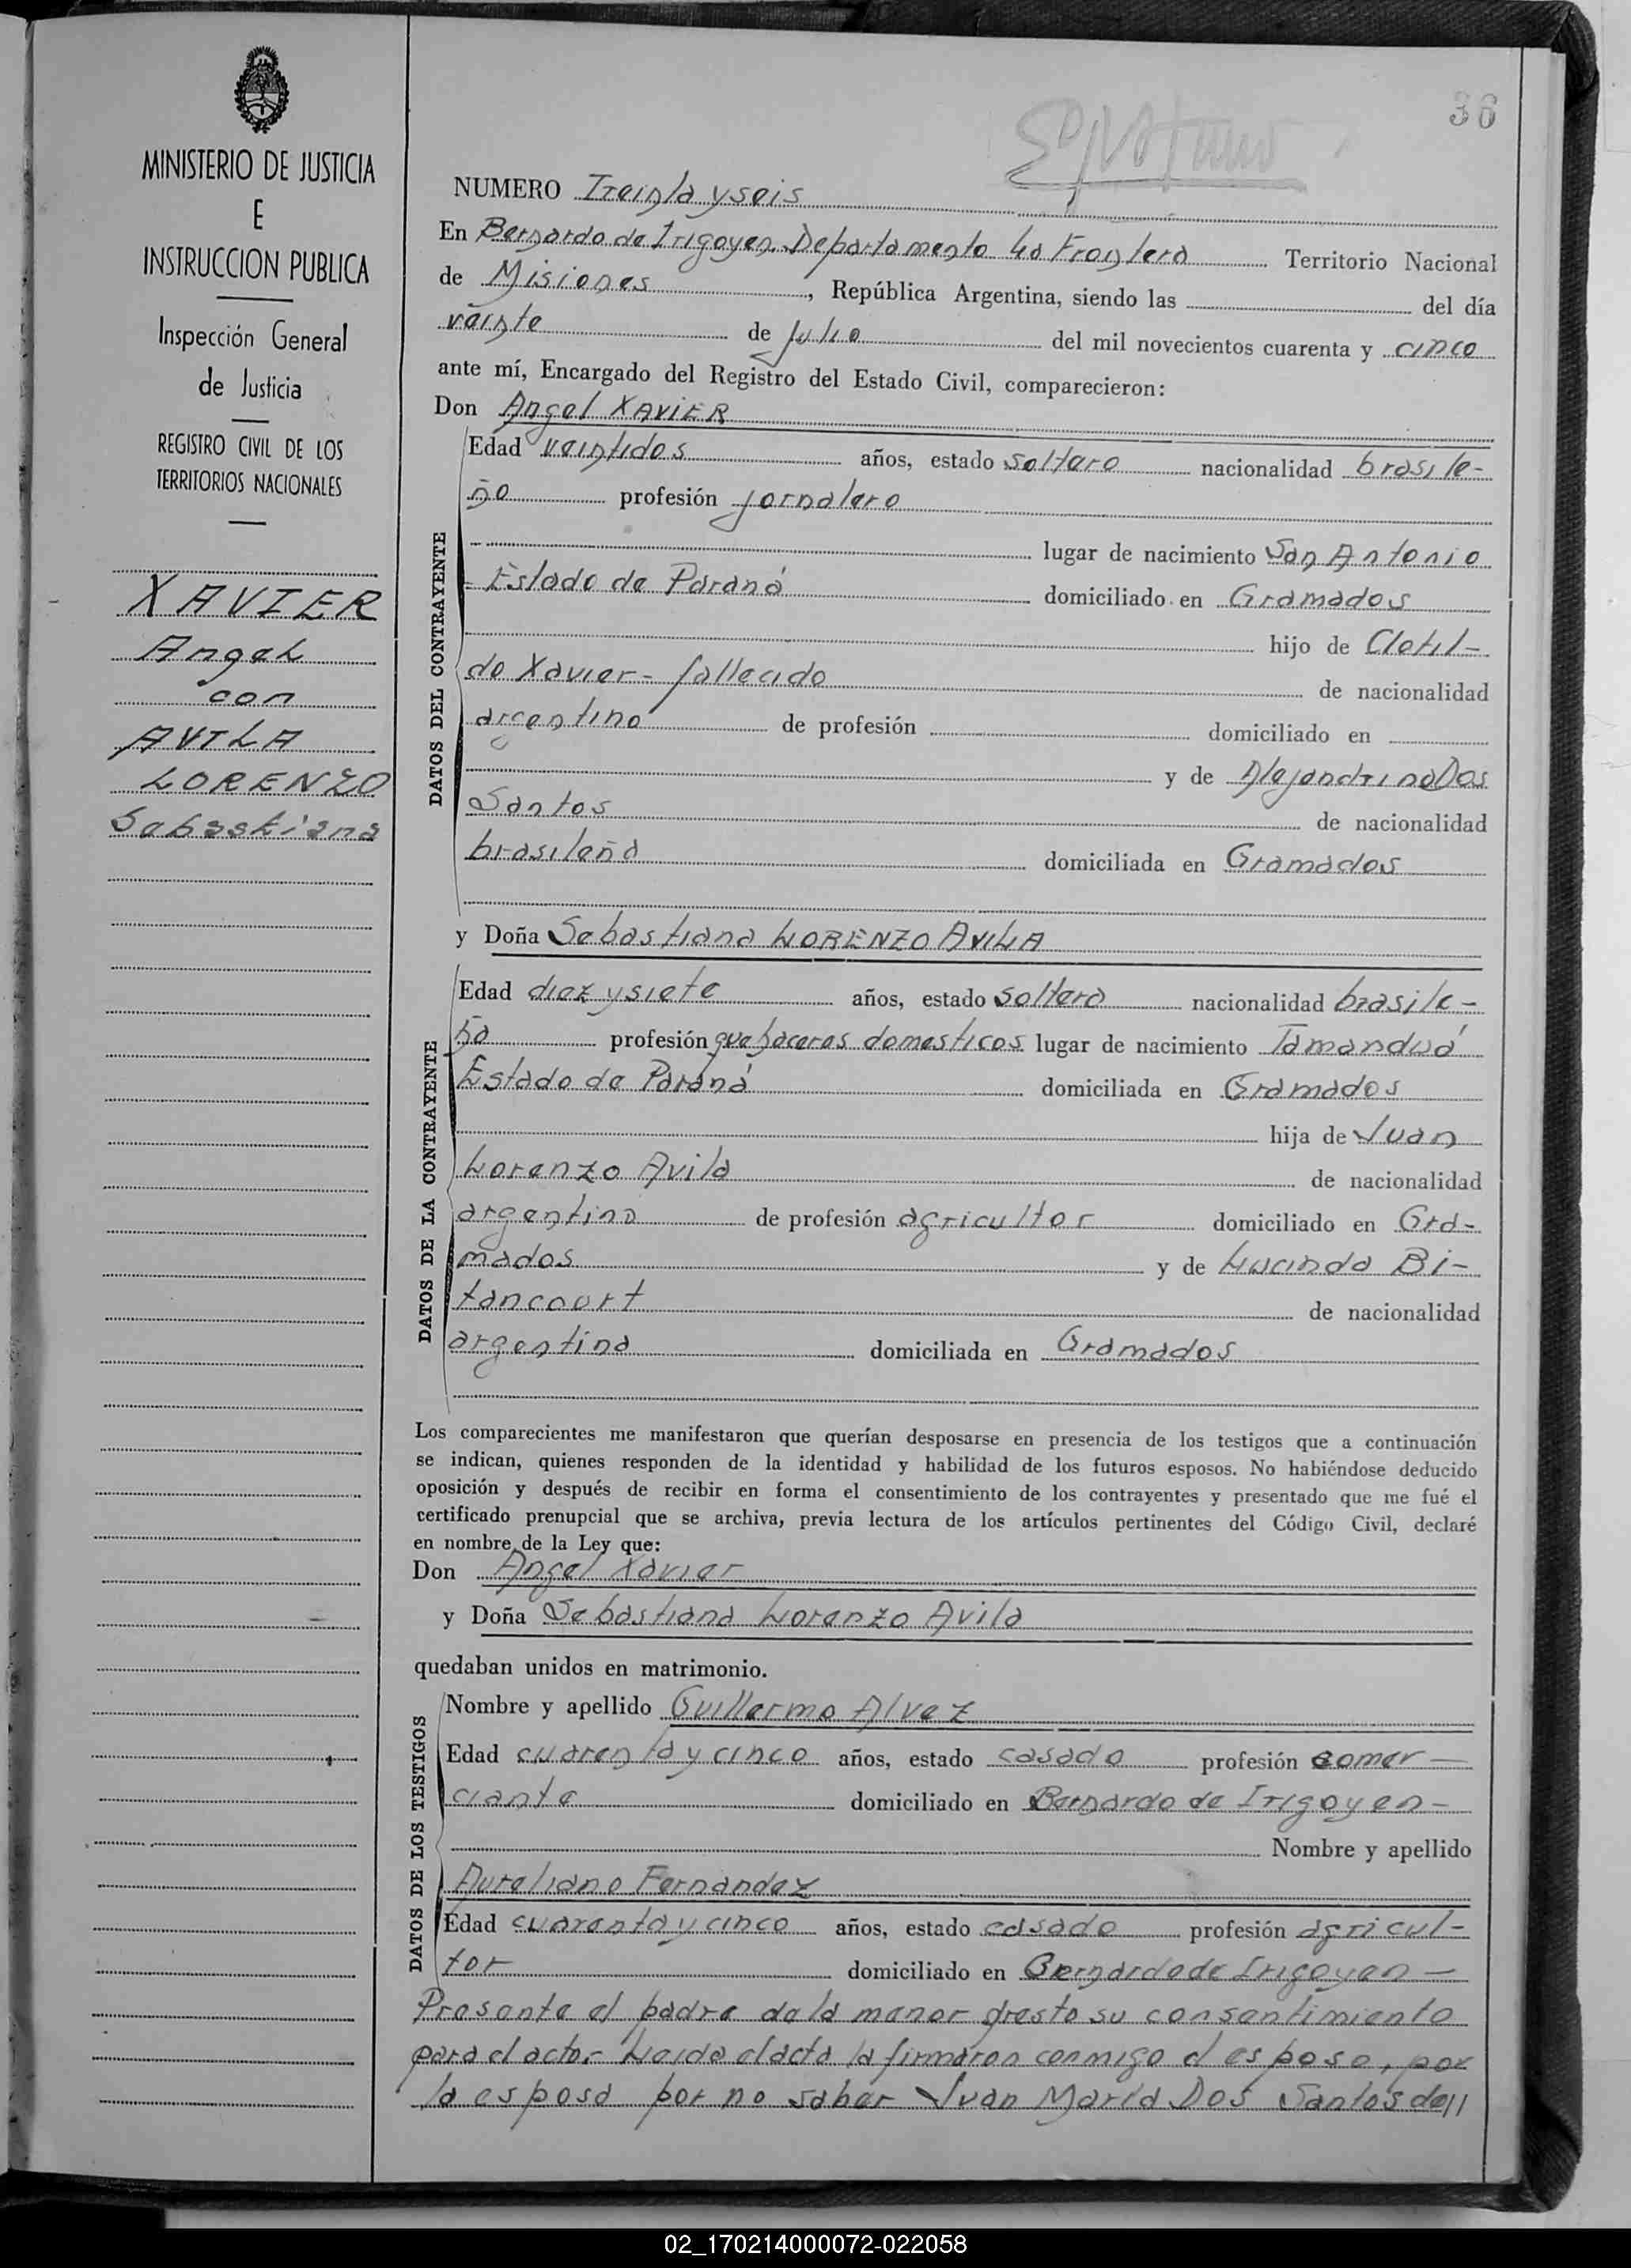 MINISTERIO DE JUSTICIA
E
INSTRUCCION PUBLICA
Inspección General
de Justicia
REGISTRO CIVIL DE LOS
TERRITORIOS NACIONALES
XAVIER
Angel
con
AVILA
LORENZO
Sebastiana
36
NUMERO Treinta y seis
En Bernardo de Irigoyen Departamento La Frontera Territorio Nacional
de Misiones, República Argentina, siendo las del día
veinte de Julio del mil novecientos cuarenta y cinco
ante mí, Encargado del Registro del Estado Civil, comparecieron:
Don Angel XAVIER
DATOS DEL CONTRAYENTE
Edad veintidos años, estado soltero nacionalidad brasile-
ño profesión jornalero
lugar de nacimiento San Antonio
Estado de Paraná domiciliado en Gramados
hijo de Clotil-
do Xavier - fallecido de nacionalidad
argentino de profesión domiciliado en
y de Alejandrina Dos
Santos de nacionalidad
brasileña domiciliada en Gramados
y Doña Sebastiana LORENZO AVILA
DATOS DE LA CONTRAYENTE
Edad diez y siete años, estado soltera nacionalidad brasile-
ña profesión quehaceres domesticos lugar de nacimiento Tamanduá
Estado de Paraná domiciliada en Gramados
hija de Juan
Lorenzo Avila de nacionalidad
argentino de profesión agricultor domiciliado en Gra-
mados y de Lucinda Bi-
tancourt de nacionalidad
argentina domiciliada en Gramados
Los comparecientes me manifestaron que querían desposarse en presencia de los testigos que a continuación
se indican, quienes responden de la identidad y habilidad de los futuros esposos. No habiéndose deducido
oposición y después de recibir en forma el consentimiento de los contrayentes y presentado que me fué el
certificado prenupcial que se archiva, previa lectura de los artículos pertinentes del Código Civil, declaré
en nombre de la Ley que:
Don Angel Xavier
y Doña Sebastiana Lorenzo Avila
quedaban unidos en matrimonio.
DATOS DE LOS TESTIGOS
Nombre y apellido Guillermo Alvez
Edad cuarenta y cinco años, estado casado profesión comer-
ciante domiciliado en Bernardo de Irigoyen -
Nombre y apellido
Aureliano Fernandez
Edad cuarenta y cinco años, estado casado profesión agricul-
tor domiciliado en Bernardo de Irigoyen -
Presente el padre de la menor presto su consentimiento
para el acto.- Leida el acta la firmaron conmigo el esposo, por
la esposa por no saber Juan Maria Dos Santos de//
02_170214000072-022058